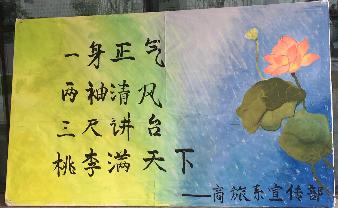 一身正气
两袖清风
三尺讲台
桃李满天下
——商旅系宣传部